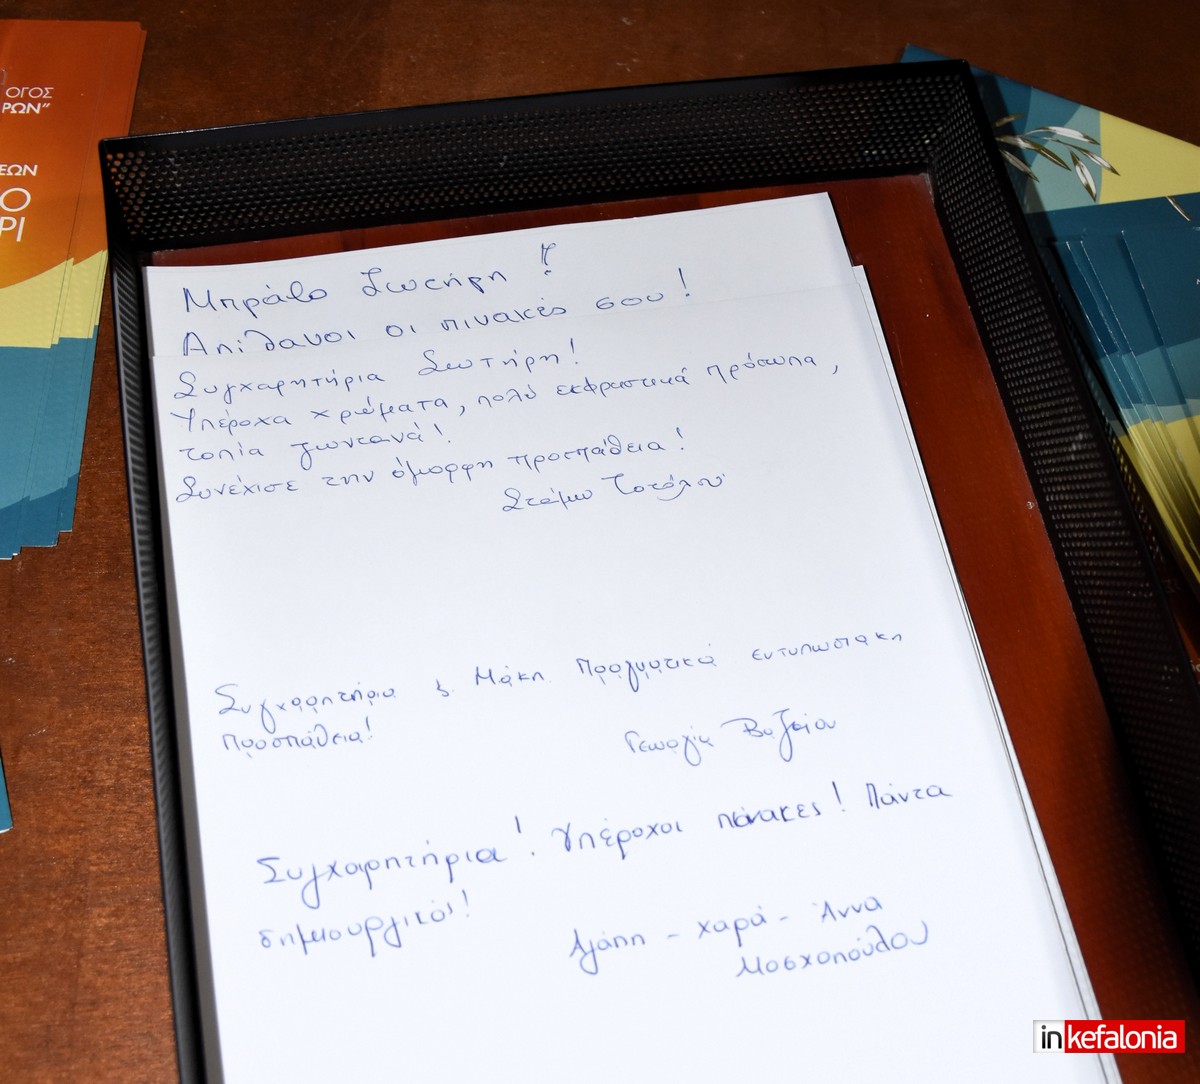 ΟΓΟΣ
ΡΩΝ"
ΕΩΝ
Ο
ΡΙ
Μπράβο Σωτήρη !
Απίθανοι οι πινακές σου !
Συγχαρητήρια Σωτήρη !
Υπέροχα χρώματα, πολύ εκφραστικά πρόσωπα,
τοπία ζωντανά !
Συνέχισε την όμορφη προσπάθεια !
Συγχαρητήρια Μάκη Πραγματικά εντυπωσιακη
προσπάθεια!
Γεωργία
Συγχαρητήρια ! Υπέροχοι πίνακες ! Πάντα
δημιουργικός!
Αγάπη - χαρά - Άννα
Μοσχοπούλου
inkefalonia